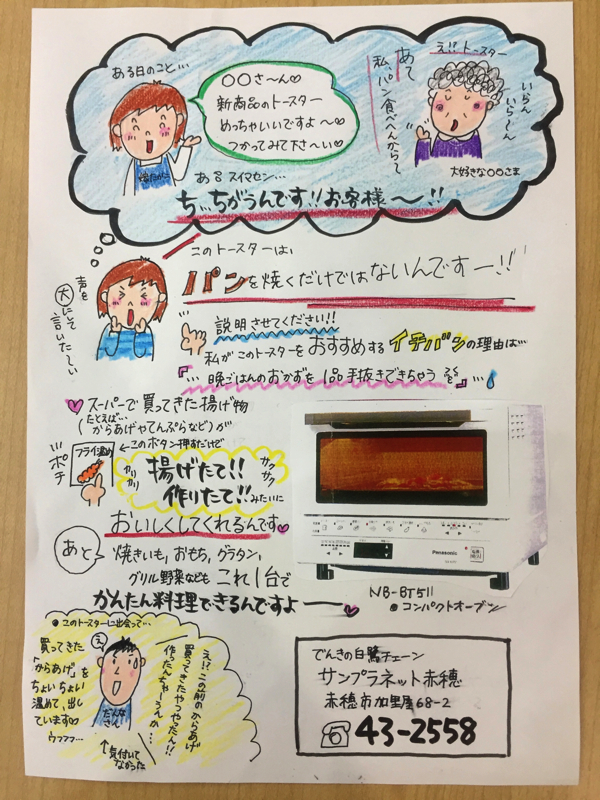 ある日のこと…
○○さ〜ん♡
新商品のトースター
めっちゃいいですよ〜♡
つかってみて下さ〜い♡
え!!トースター
あて
私、パン食べへんからて
いらん
いら〜ん
大好きな○○さま
あ8スイマセン…
ち、ちがうんです!!お客様〜!!
このトースターは、
パンを焼くだけではないんですー!!
声を
大にて
言いた〜い
説明させてください!!
私がこのトースターをおすすめするイチバンの理由は…
『…晩ごはんのおかずを1品手抜きできちゃう』…
♥スーパーで買ってきた揚げ物
(たとえば…
からあげやてんぷらなど)が
ポチ
フライ温め
←このボタン押すだけで
カリカリ
揚げたて!!
サクサク
作りたて!!みたいに
おいしくしてくれるんです♥
あと
焼きいも,おもち,グラタン,
グリル野菜なども これ1台で
かんたん料理できるんですよー♥
Panasonic
NB-BT511
●コンパクトオーブン
●このトースターに出会って…
買ってきた
「からあげ」を
ちょいちょい
温めて、出し
ています♡
ウフフ…
え
だんなさん
↑気付いて
なかった
え!?この前のからあげ
買ってきたやつやったん!!
作ったんちゃーうんか…
でんきの白鷺チェーン
サンプラネット赤穂
赤穂市加里屋68-2
☎43-2558